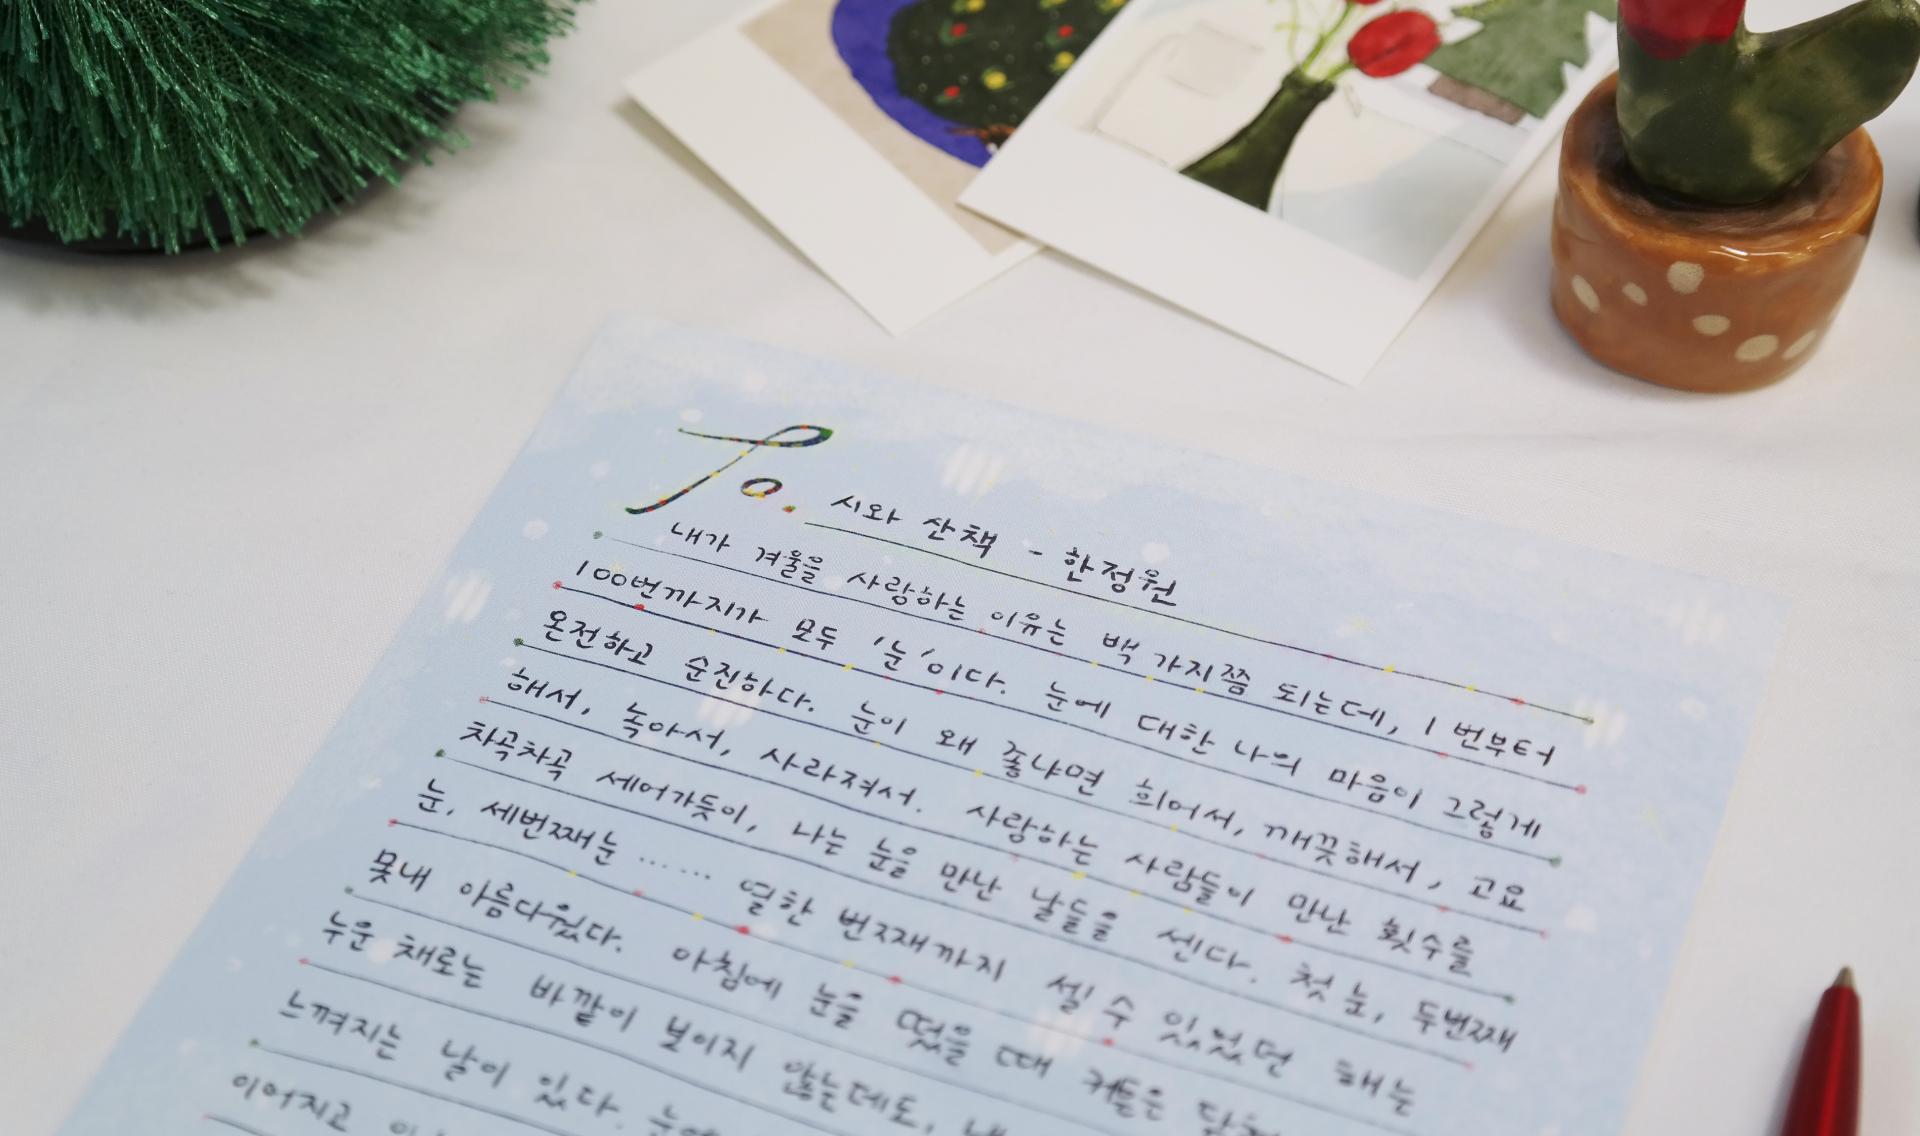 To. 시와 산책 - 한정원
내가 겨울을 사랑하는 이유는 백 가지쯤 되는데, 1번부터
100번까지가 모두 '눈'이다. 눈에 대한 나의 마음이 그렇게
온전하고 순진하다. 눈이 왜 좋냐면 희어서, 깨끗해서, 고요
해서, 녹아서, 사라져서. 사랑하는 사람들이 만난 횟수를
차곡차곡 세어가듯이, 나는 눈을 만난 날들을 센다. 첫 눈, 두번째
눈, 세번째눈 ...... 열한 번째까지 셀 수 있었던 해는
못내 아름다웠다. 아침에 눈을 떴을 때 커튼은 닫혀
누운 채로는 바깥이 보이지 않는데도,
느껴지는 날이 있다.
이어지고